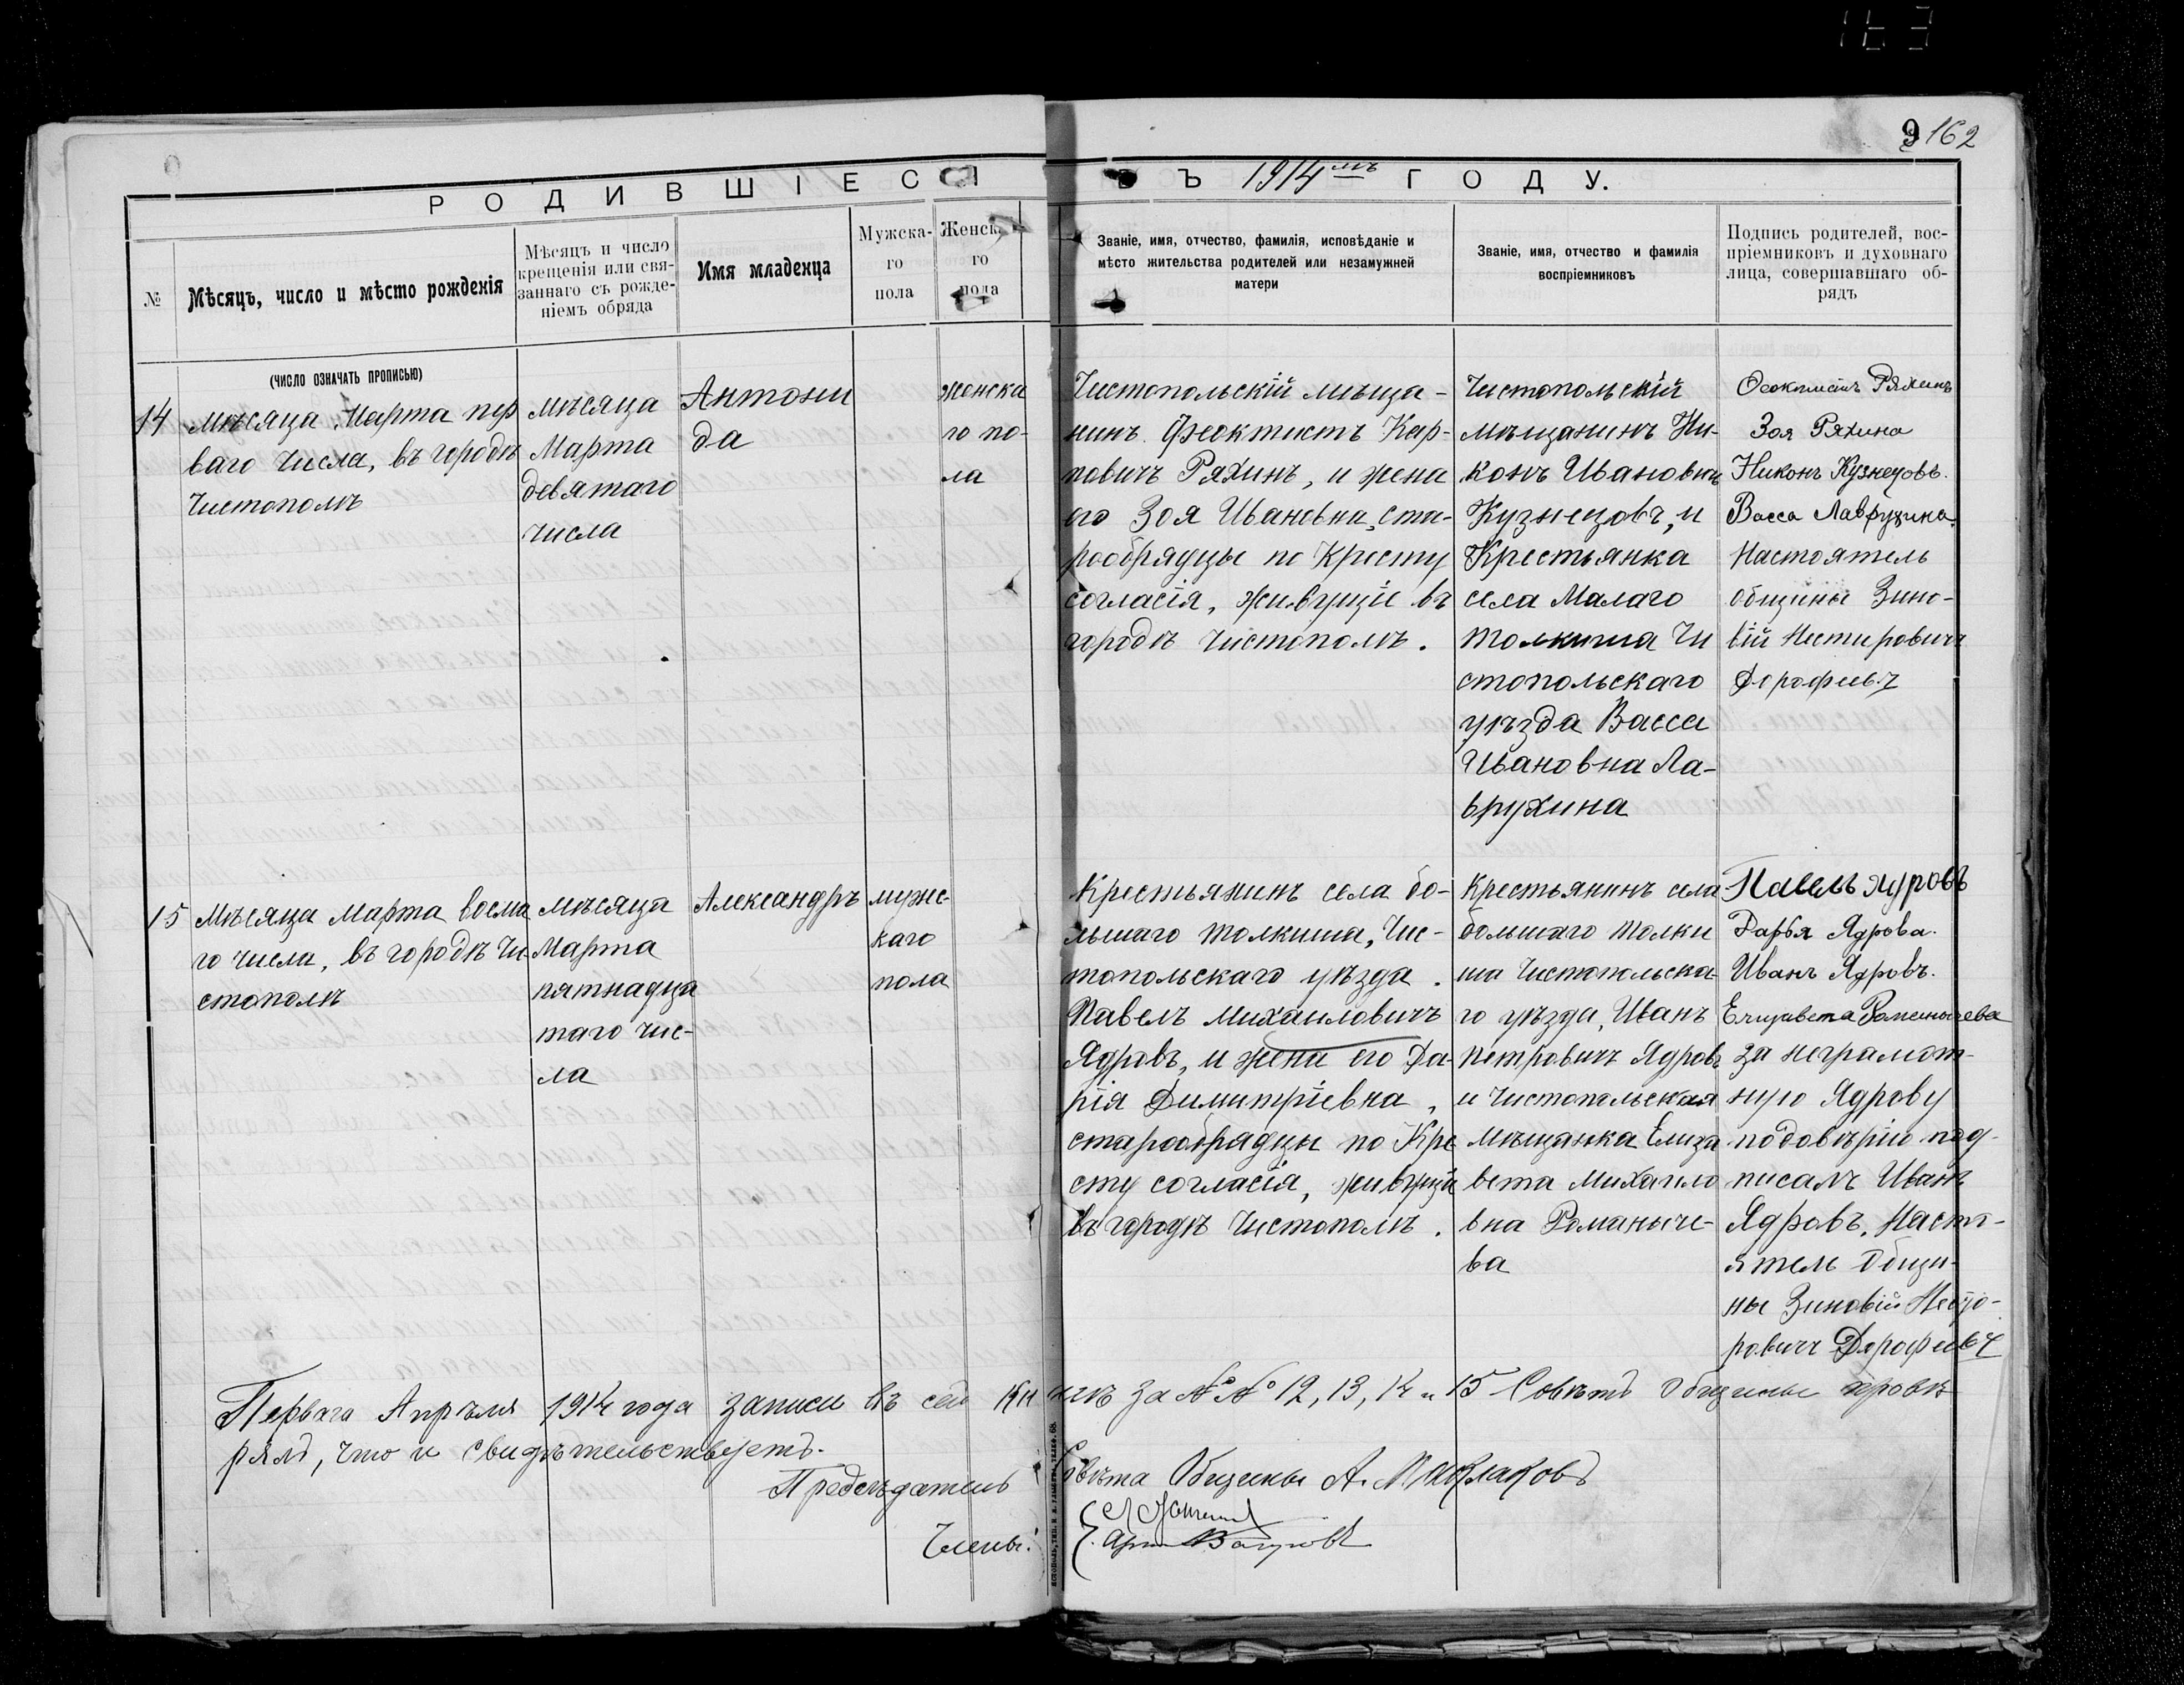 9 162
РОДИВШІЕСЯ ВЪ 1914мъ ГОДУ.
№
Мѣсяцъ, число и мѣсто рожденія
Мѣсяцъ и число
крещенія или свя-
заннаго съ рожде-
ніемъ обряда
Имя младенца
Мужска-
го
пола
Женска-
го
пола
Званіе, имя, отчество, фамилія, исповѣданіе и
мѣсто жительства родителей или незамужней
матери
Званіе, имя, отчество и фамилія
воспріемниковъ
Подпись родителей, вос-
пріемниковъ и духовнаго
лица, совершавшаго об-
рядъ
(ЧИСЛО ОЗНАЧАТЬ ПРОПИСЬЮ)
14
мѣсяца Марта пер
ваго числа, въ городѣ
Чистополѣ
мѣсяца
Марта
девятаго
числа
Антони
да
женска
го по-
ла
Чистопольскій мѣща-
нинъ Феоктистъ Кар-
повичъ Ряхинъ, и жена
его Зоя Ивановна, ста-
рообрядцы по Кресту
согласія, живущіе въ
городѣ Чистополѣ.
Чистопольскій
мѣщанинъ Ни-
конъ Ивановичъ
Кузнецовъ, и
Крестьянка
села Малаго
Толкиша Чи
стопольскаго
уѣзда Васса
Ивановна Ла-
врухина
Феоктистъ Ряхинъ
Зоя Ряхина
Никонъ Кузнецовъ.
Васса Лаврухина.
Настоятель
общины Зино-
вій Нестировичъ
Дорофеевъ
15
Мѣсяца Марта восма
го числа, въ городѣ Чи-
стополѣ
мѣсяца
Марта
пятнадца
таго чис-
ла
Александръ
мужс-
каго
пола
Крестьянинъ села бо-
льшаго Толкиша, Чис-
топольскаго уѣзда.
Павелъ Михаиловичъ
Ядровъ, и жена его Да-
рія Димитріевна,
старообрядцы по Кре
сту согласія, живущіе
въ городѣ Чистополѣ.
Крестьянинъ села
большаго Толки
ша Чистопольска-
го уѣзда, Иванъ
Петровичъ Ядровъ
и Чистопольская
мѣщанка Елиза
вета Михаило
вна Романыче-
ва
Павелъ Ядровъ
Дарья Ядрова.
Иванъ Ядровъ.
Елизавета Романычева
за неграмот-
ную Ядрову
подовѣрію под-
писалъ Иванъ
Ядровъ. Насто-
ятель Общи-
ны Зиновій Несто-
ровичъ Дорофеевъ
Перваго Апрѣля 1914 года записи въ сей книгѣ за №№ 12, 13, 14 и 15 Совѣтъ Общины провѣ
рялъ, что и свидѣтельствуетъ.
Предсѣдатель Совѣта Общины А. Маклаковъ
Члены: